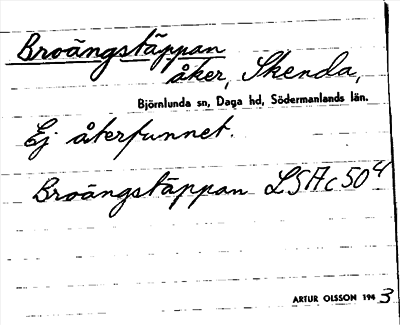 Broängstäppan
åker, Skenda,
Björnlunda sn, Daga hd, Södermanlands län.
Ej återfunnet.
Broängstäppan LSAc504
ARTUR OLSSON 1943